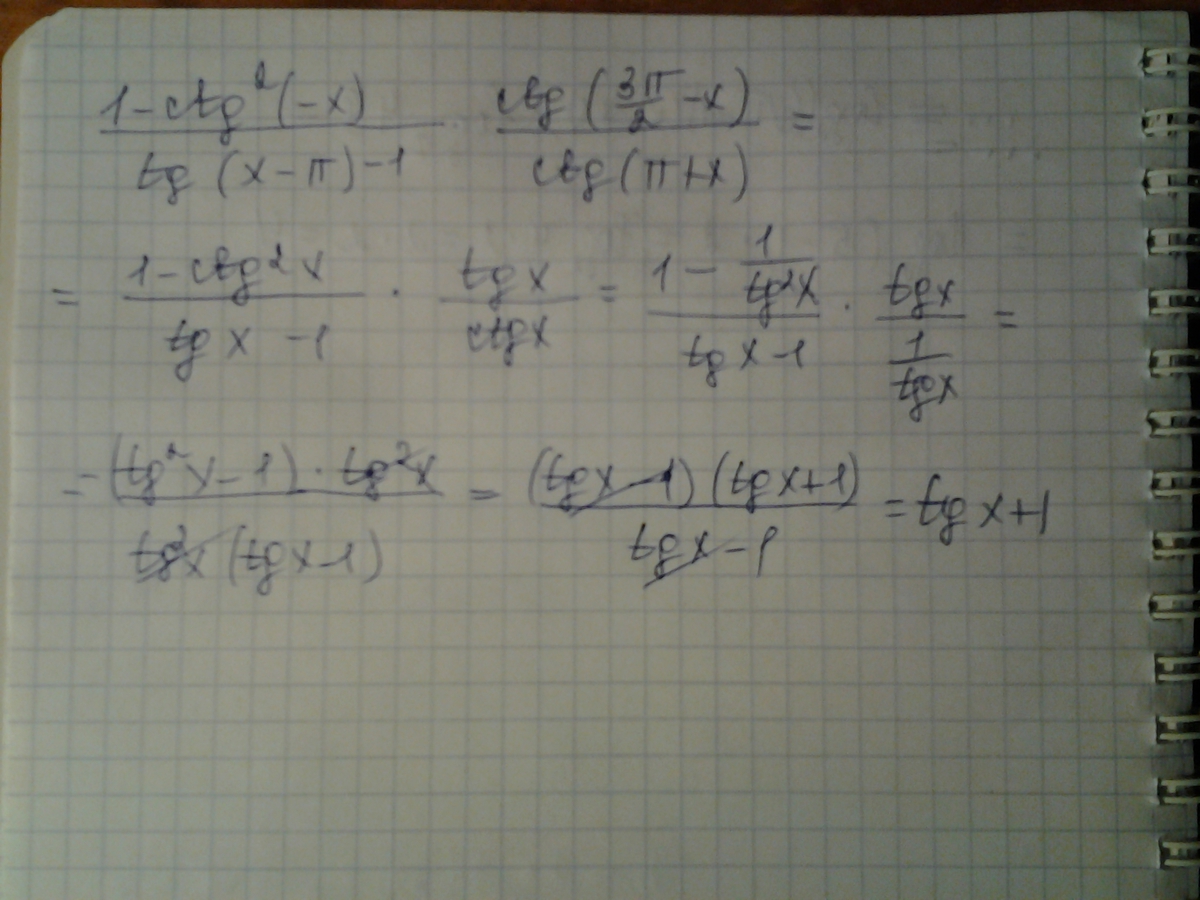 (1-ctg²(-x))/(tg(x-π)-1) · ctg(3π/2-x)/ctg(π+x) =
= (1-ctg²x)/(tgx-1) · tgx/ctgx = (1-1/tg²x)/(tgx-1) · tgx/(1/tgx) =
= ((tg²x-1)·tg²x)/(tg²x(tgx-1)) = ((tgx-1)(tgx+1))/(tgx-1) = tgx+1